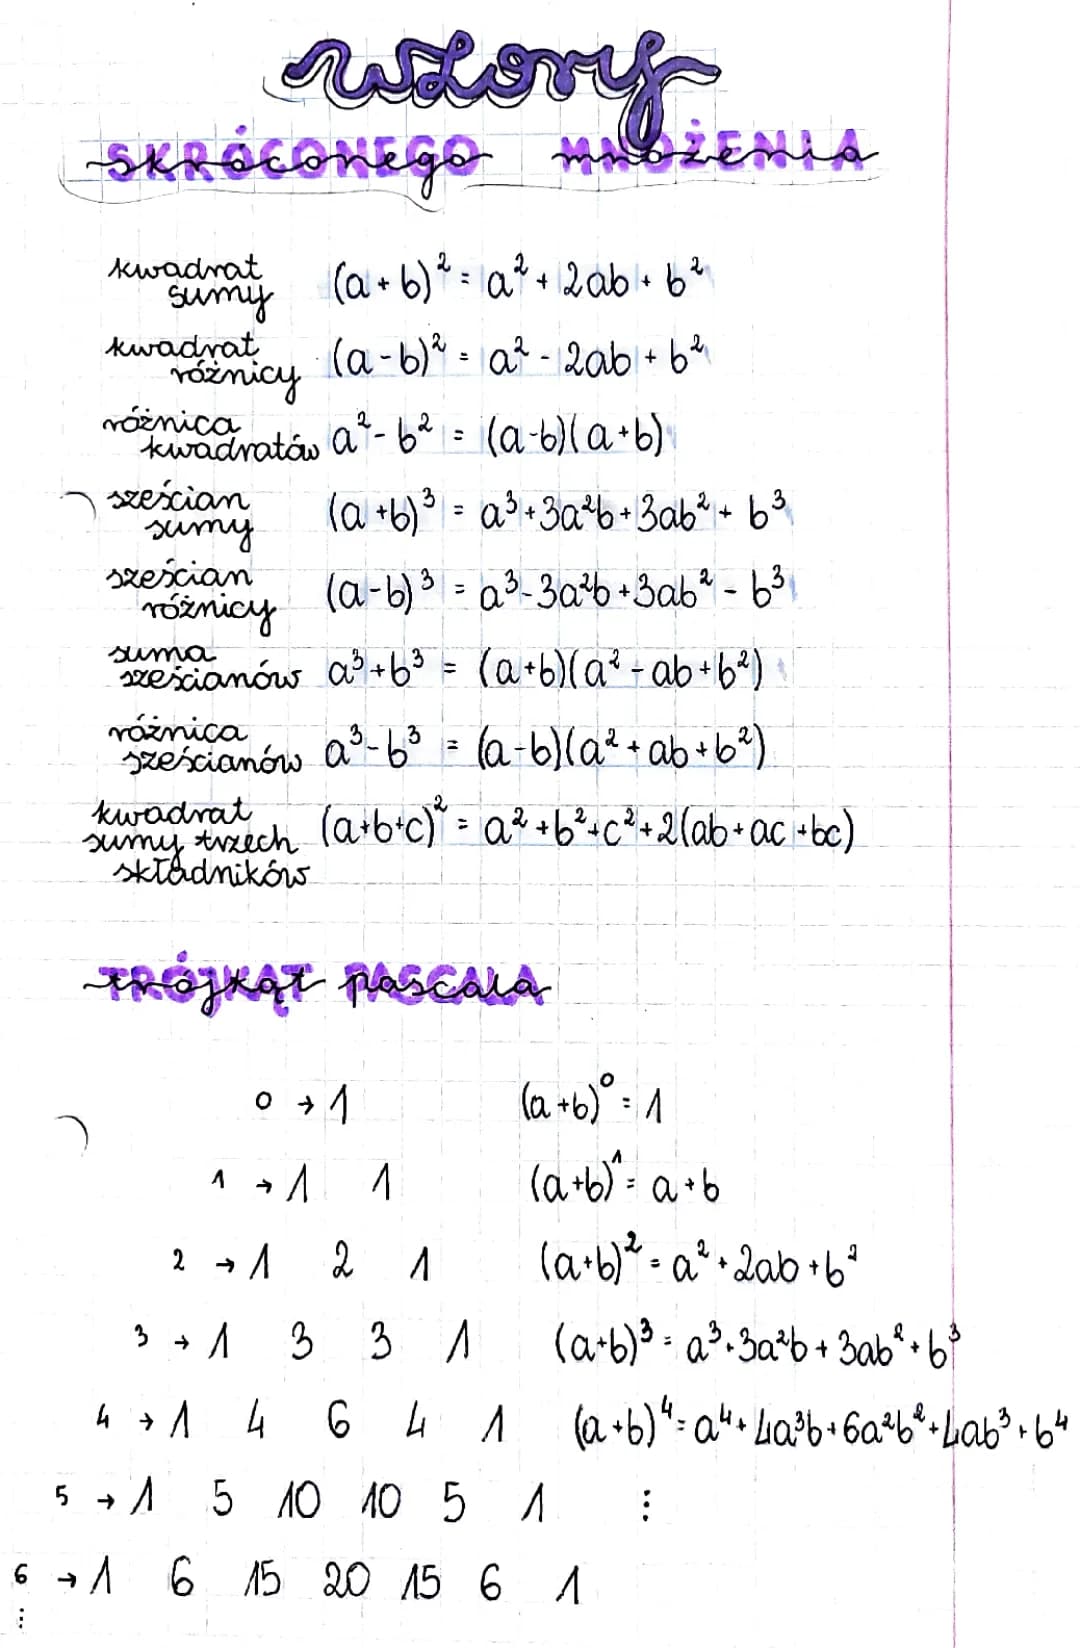 wzory
SKRÓCONEGO MNOŻENIA
kwadrat sumy (a+b)² = a² + 2ab + b²
kwadrat różnicy (a-b)² = a² - 2ab + b²
różnica kwadratów a² - b² = (a-b)(a+b)
sześcian sumy (a+b)³ = a³ + 3a²b + 3ab² + b³
sześcian różnicy (a-b)³ = a³ - 3a²b + 3ab² - b³
suma sześcianów a³ + b³ = (a+b)(a² - ab + b²)
różnica sześcianów a³ - b³ = (a-b)(a² + ab + b²)
kwadrat sumy trzech składników (a+b+c)² = a² + b² + c² + 2(ab + ac + bc)
TRÓJKĄT PASCALA
0 → 1 (a+b)⁰ = 1
1 → 1 1 (a+b)¹ = a + b
2 → 1 2 1 (a+b)² = a² + 2ab + b²
3 → 1 3 3 1 (a+b)³ = a³ + 3a²b + 3ab² + b³
4 → 1 4 6 4 1 (a+b)⁴ = a⁴ + 4a³b + 6a²b² + 4ab³ + b⁴
5 → 1 5 10 10 5 1 ⋮
6 → 1 6 15 20 15 6 1
⋮